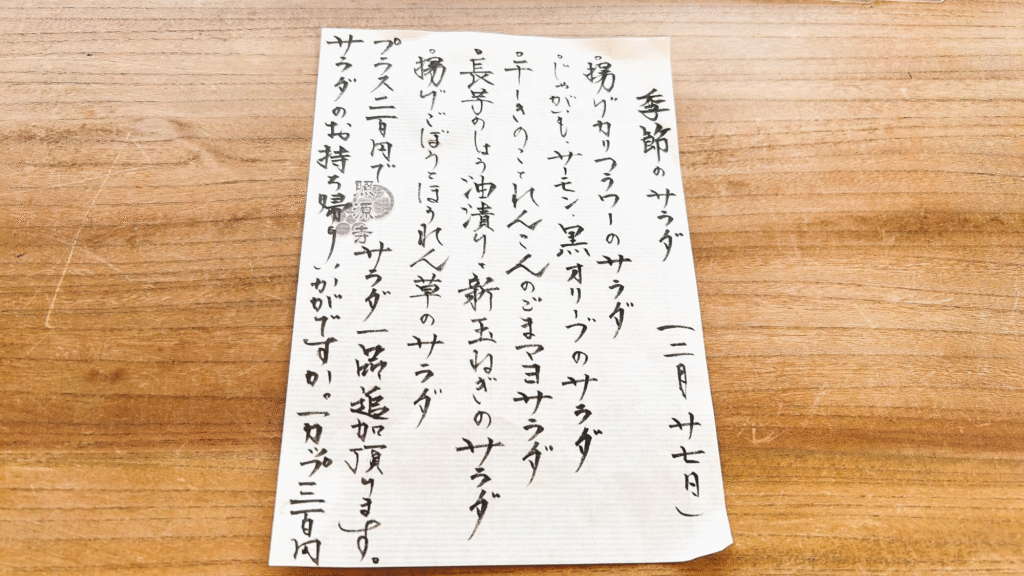 季節のサラダ (二月廿七日)
。揚げカリフラワーのサラダ
。じゃがいも、サーモン、黒オリーブのサラダ
。干しきのことれんこんのごまマヨサラダ
。長芋のしょう油漬けと新玉ねぎのサラダ
。揚げごぼうとほうれん草のサラダ
プラス二百円でサラダ一品追加頂けます。
サラダのお持ち帰りいかがですか。一カップ三百円
照源寺